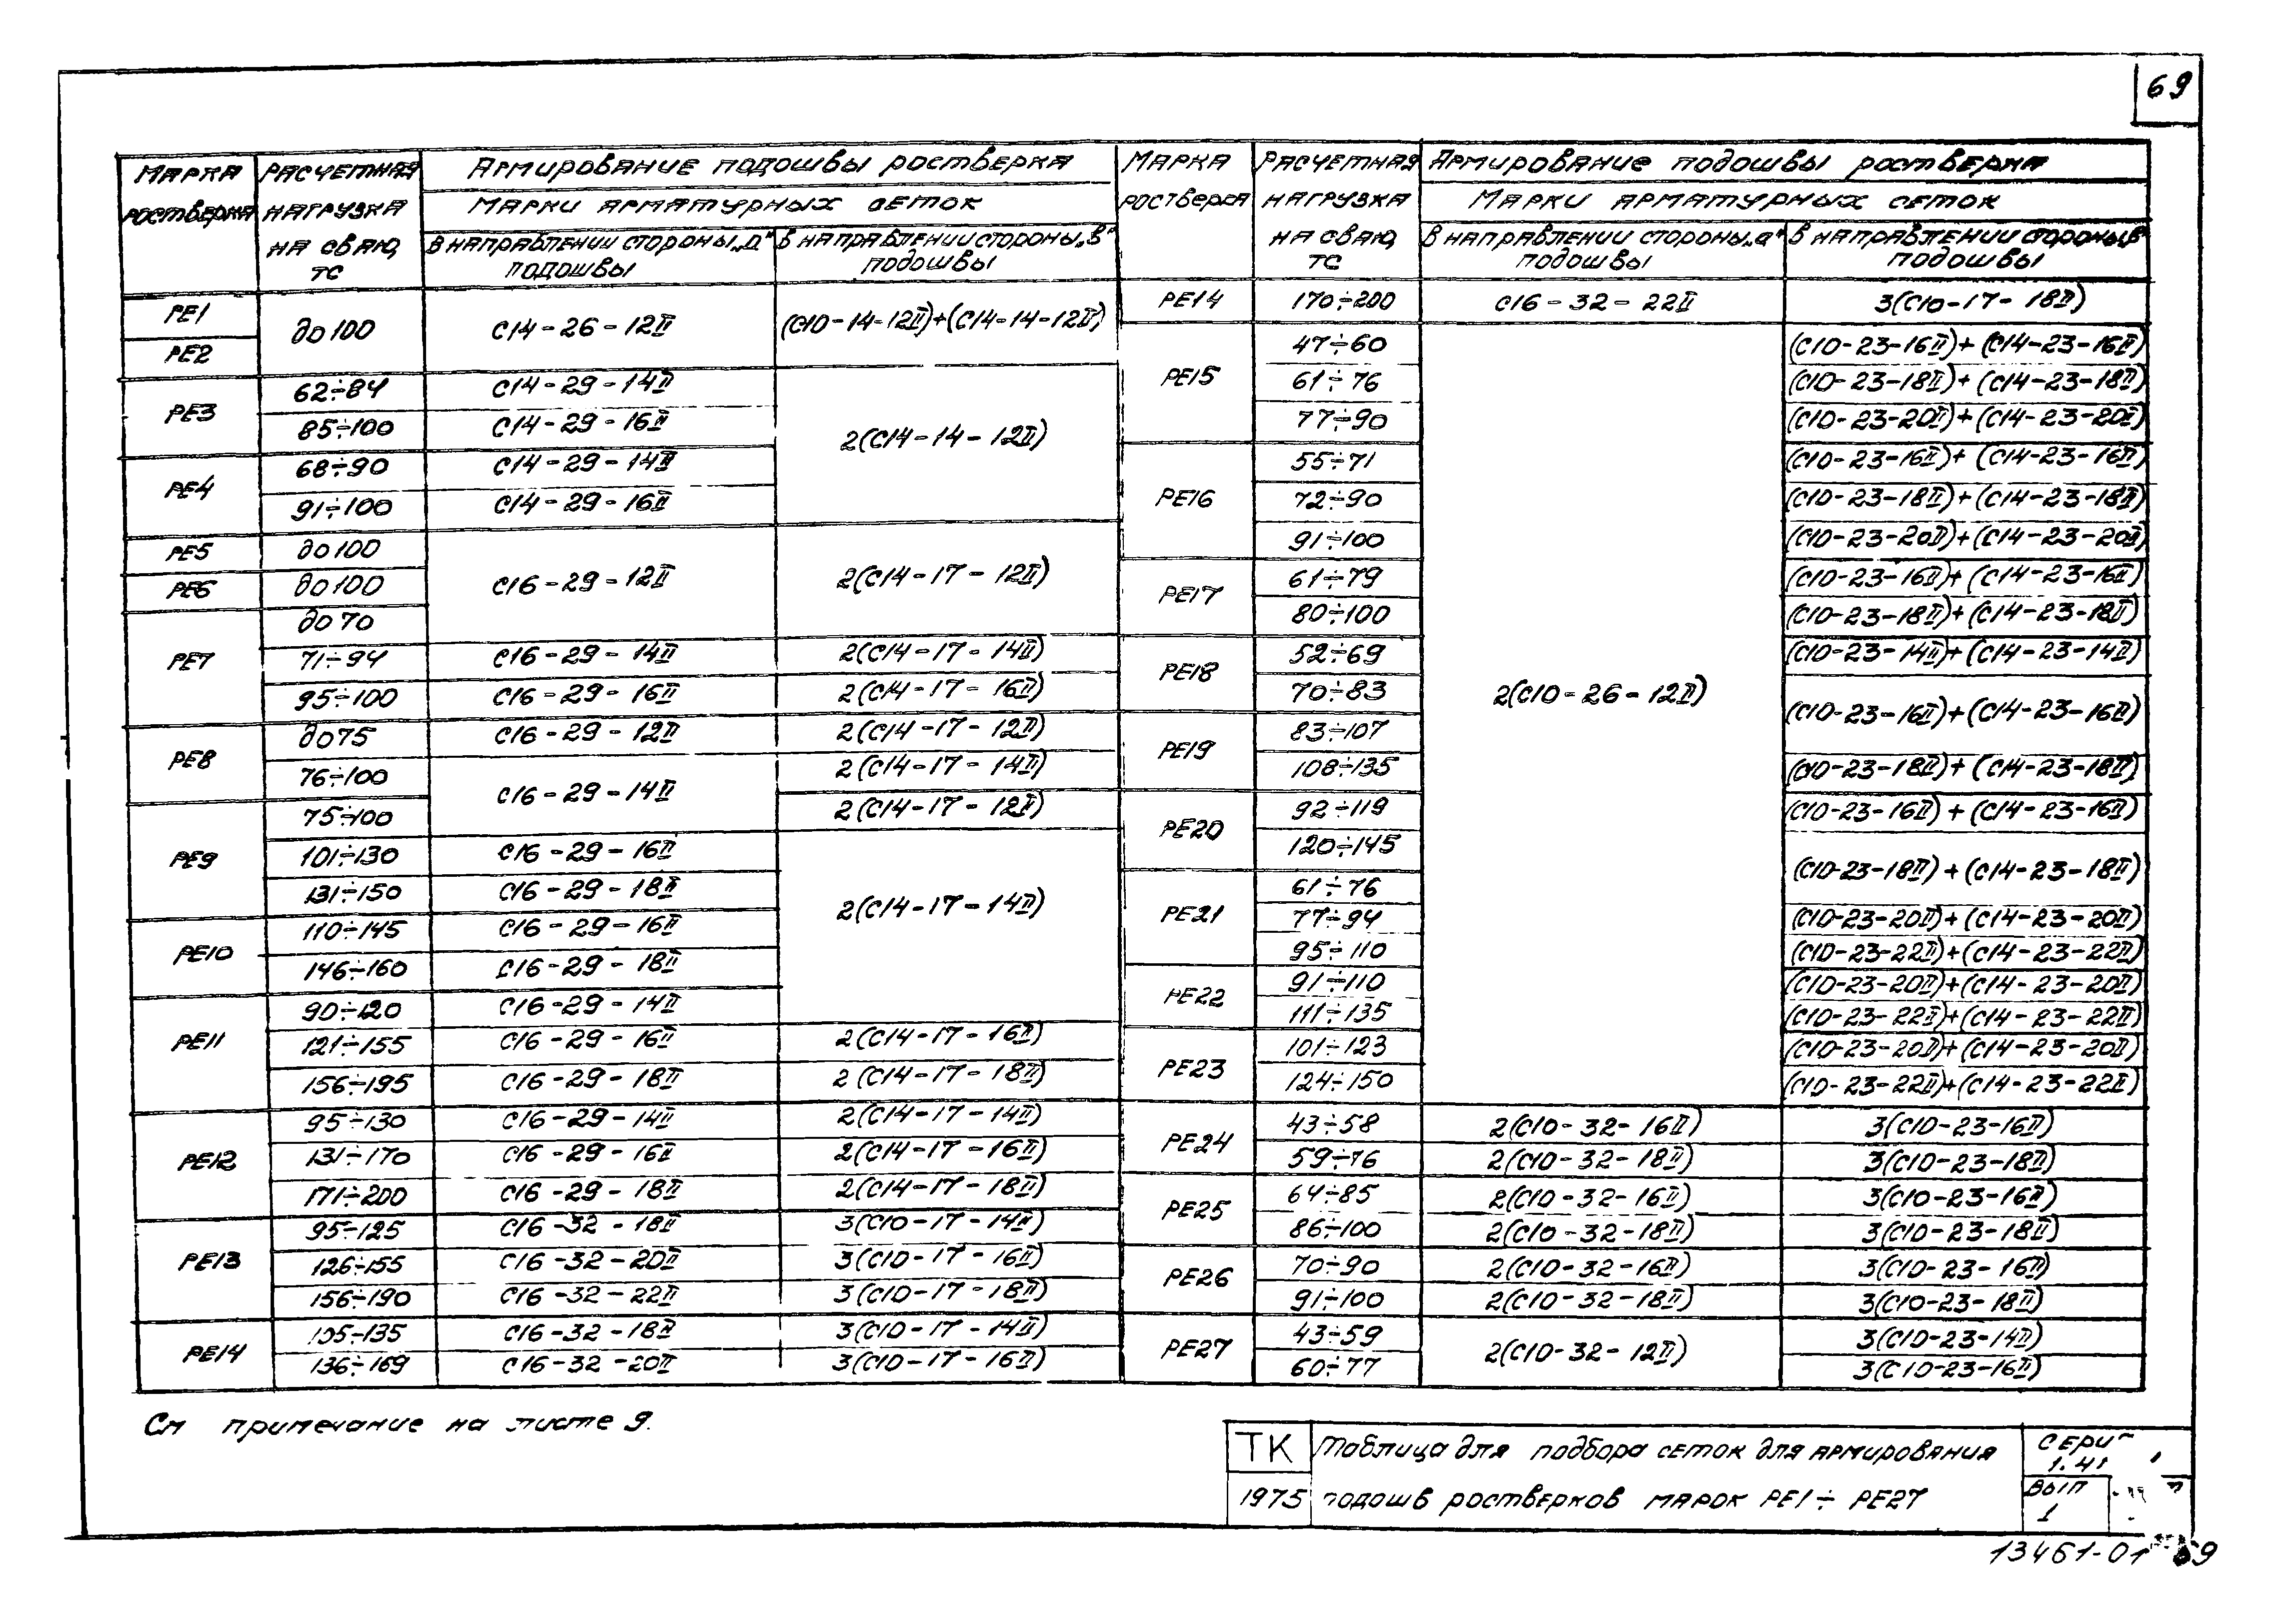 69
МАРКА РОСТВЕРКА | РАСЧЕТНАЯ НАГРУЗКА НА СВАЮ, ТС | АРМИРОВАНИЕ ПОДОШВЫ РОСТВЕРКА
МАРКИ АРМАТУРНЫХ СЕТОК
В НАПРАВЛЕНИИ СТОРОНЫ „а" ПОДОШВЫ | В НАПРАВЛЕНИИ СТОРОНЫ „в" ПОДОШВЫ
РЕ1 | до 100 | С14-26-12II | (С10-14-12II)+(С14-14-12II)
РЕ2
РЕ3 | 62÷84 | С14-29-14II | 2(С14-14-12II)
85÷100 | С14-29-16II
РЕ4 | 68÷90 | С14-29-14II
91÷100 | С14-29-16II
РЕ5 | до 100 | С16-29-12II | 2(С14-17-12II)
РЕ6 | до 100
РЕ7 | до 70
71÷94 | С16-29-14II | 2(С14-17-14II)
95÷100 | С16-29-16II | 2(С14-17-16II)
РЕ8 | до 75 | С16-29-12II | 2(С14-17-12II)
76÷100 | С16-29-14II | 2(С14-17-14II)
РЕ9 | 75÷100 | 2(С14-17-12II)
101÷130 | С16-29-16II | 2(С14-17-14II)
131÷150 | С16-29-18II
РЕ10 | 110÷145 | С16-29-16II
146÷160 | С16-29-18II
РЕ11 | 90÷120 | С16-29-14II
121÷155 | С16-29-16II | 2(С14-17-16II)
156÷195 | С16-29-18II | 2(С14-17-18II)
РЕ12 | 95÷130 | С16-29-14II | 2(С14-17-14II)
131÷170 | С16-29-16II | 2(С14-17-16II)
171÷200 | С16-29-18II | 2(С14-17-18II)
РЕ13 | 95÷125 | С16-32-18II | 3(С10-17-14II)
126÷155 | С16-32-20II | 3(С10-17-16II)
156÷190 | С16-32-22II | 3(С10-17-18II)
РЕ14 | 105÷135 | С16-32-18II | 3(С10-17-14II)
136÷169 | С16-32-20II | 3(С10-17-16II)
МАРКА РОСТВЕРКА | РАСЧЕТНАЯ НАГРУЗКА НА СВАЮ, ТС | АРМИРОВАНИЕ ПОДОШВЫ РОСТВЕРКА
МАРКИ АРМАТУРНЫХ СЕТОК
В НАПРАВЛЕНИИ СТОРОНЫ „а" ПОДОШВЫ | В НАПРАВЛЕНИИ СТОРОНЫ „в" ПОДОШВЫ
РЕ14 | 170÷200 | С16-32-22II | 3(С10-17-18II)
РЕ15 | 47÷60 | 2(С10-26-12II) | (С10-23-16II)+(С14-23-16II)
61÷76 | (С10-23-18II)+(С14-23-18II)
77÷90 | (С10-23-20II)+(С14-23-20II)
РЕ16 | 55÷71 | (С10-23-16II)+(С14-23-16II)
72÷90 | (С10-23-18II)+(С14-23-18II)
91÷100 | (С10-23-20II)+(С14-23-20II)
РЕ17 | 61÷79 | (С10-23-16II)+(С14-23-16II)
80÷100 | (С10-23-18II)+(С14-23-18II)
РЕ18 | 52÷69 | (С10-23-14II)+(С14-23-14II)
70÷83 | (С10-23-16II)+(С14-23-16II)
РЕ19 | 83÷107
108÷135 | (С10-23-18II)+(С14-23-18II)
РЕ20 | 92÷119 | (С10-23-16II)+(С14-23-16II)
120÷145 | (С10-23-18II)+(С14-23-18II)
РЕ21 | 61÷76
77÷94 | (С10-23-20II)+(С14-23-20II)
95÷110 | (С10-23-22II)+(С14-23-22II)
РЕ22 | 91÷110 | (С10-23-20II)+(С14-23-20II)
111÷135 | (С10-23-22II)+(С14-23-22II)
РЕ23 | 101÷123 | (С10-23-20II)+(С14-23-20II)
124÷150 | (С10-23-22II)+(С14-23-22II)
РЕ24 | 43÷58 | 2(С10-32-16II) | 3(С10-23-16II)
59÷76 | 2(С10-32-18II) | 3(С10-23-18II)
РЕ25 | 64÷85 | 2(С10-32-16II) | 3(С10-23-16II)
86÷100 | 2(С10-32-18II) | 3(С10-23-18II)
РЕ26 | 70÷90 | 2(С10-32-16II) | 3(С10-23-16II)
91÷100 | 2(С10-32-18II) | 3(С10-23-18II)
РЕ27 | 43÷59 | 2(С10-32-12II) | 3(С10-23-14II)
60÷77 | 3(С10-23-16II)
См примечание на листе 9.
ТК | Таблица для подбора сеток для армирования
1975 | подошв ростверков марок РЕ1÷РЕ27
ВЫП
1
13461-01 69